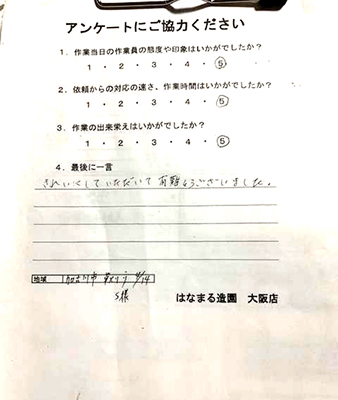 アンケートにご協力ください
1．作業当日の作業員の態度や印象はいかがでしたか？
1 ・ 2 ・ 3 ・ 4 ・ 5
2．依頼からの対応の速さ、作業時間はいかがでしたか？
1 ・ 2 ・ 3 ・ 4 ・ 5
3．作業の出来栄えはいかがでしたか？
1 ・ 2 ・ 3 ・ 4 ・ 5
4．最後に一言
きれいにしていただいて有難うございました。
地域 加古川市 4/14
S様
はなまる造園 大阪店